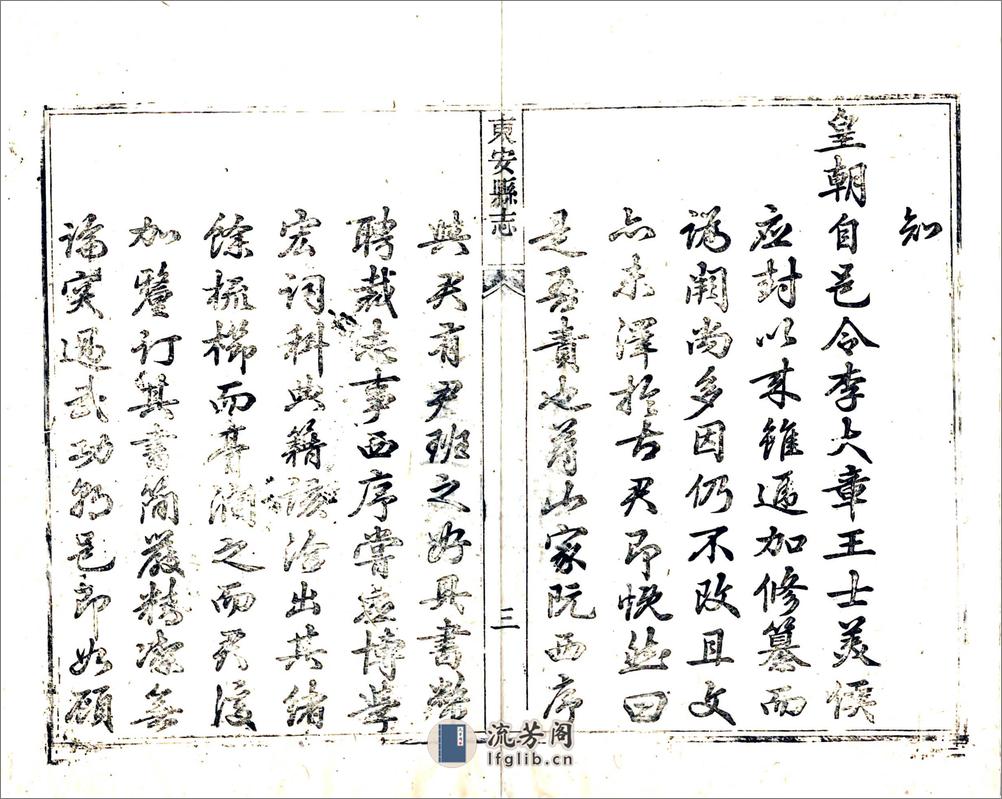 知
皇朝自邑令李大章王士美侯
應封以來雖遞加修纂而
訛闕尚多因仍不改且文
亦未澤於古君即慨然曰
是吾責也蕭山家阮西序
東安縣志
三
與君有尹班之好具書幣
聘裁志事西序嘗應博學
宏詞科典籍該洽出其緒
餘梳櫛而膏潤之而君復
加釐訂其書簡嚴精潔無
論突過武功朝邑即如顧
流芳阁
lfglib.cn